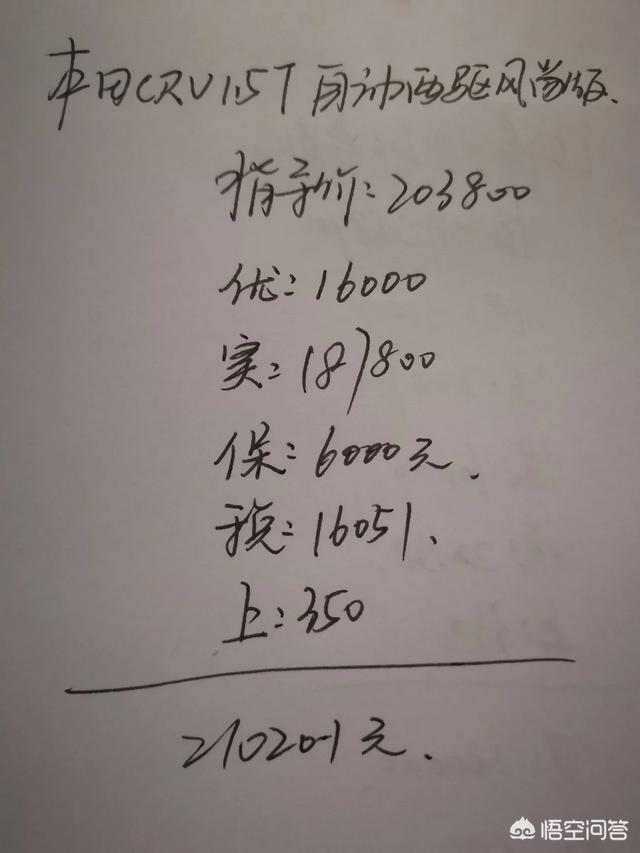 本田CRV1.5T自动两驱风尚版.
指导价:203800
优:16000
实:187800
保:6000元.
税:16051.
上:350
210201元.
悟空问答